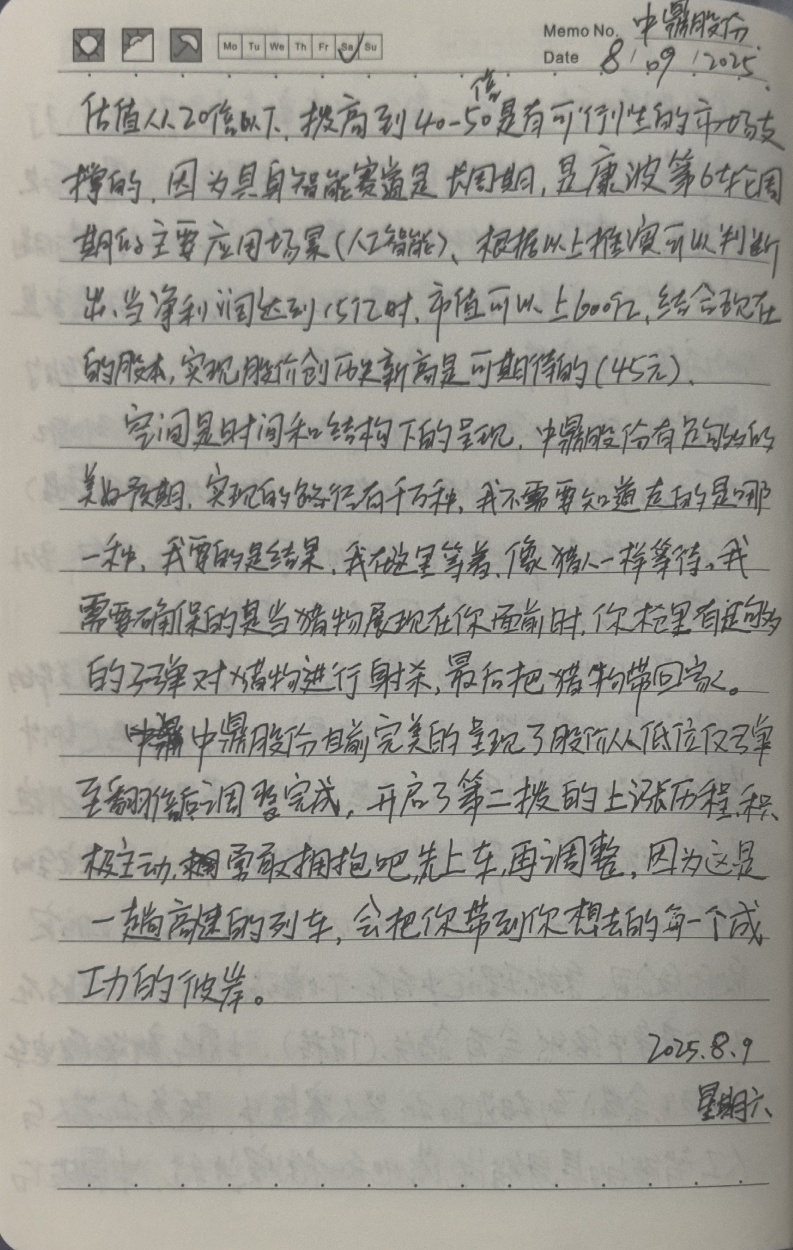 Memo No. 中鼎股份.
Mo Tu We Th Fr Sa Su
Date 8 / 09 / 2025.
倍
估值从20倍以下,提高到40-50是有可行性的市场支
撑的,因为具身智能赛道是长周期,是康波第6轮周
期的主要应用场景(人工智能)、根据以上推演可以判断
出,当净利润达到15亿时,市值可以上600亿,结合现在
的股本,实现股价创历史新高是可期待的(45元)、
空间是时间和结构下的呈现,中鼎股份有足够的
美好预期,实现的路径有千万种,我不需要知道走的是哪
一种,我要的是结果,我在这里等着,像猎人一样等待。我
需要确保的是当猎物展现在你面前时,你枪里有足够
的子弹对猎物进行射杀,最后把猎物带回家。
中鼎股份目前完美的呈现了股价从低位反弹
至翻倍后调整完成,开启了第二拨的上涨历程,积
极主动,勇敢拥抱吧,先上车,再调整,因为这是
一趟高速的列车,会把你带到你想去的每一个成
功的彼岸。
2025.8.9
星期六